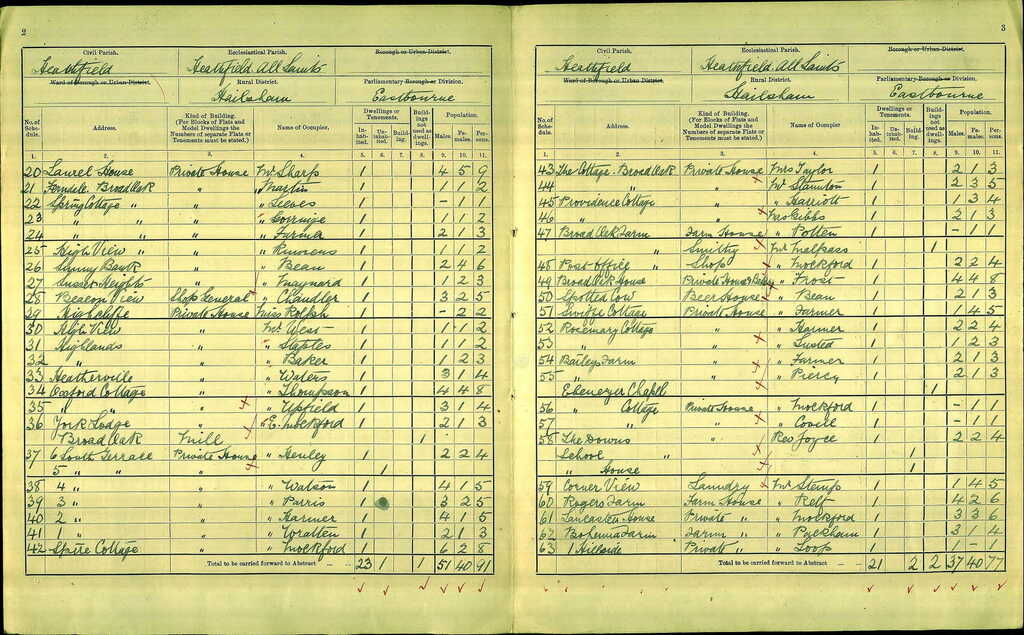 2
Civil Parish. Ecclesiastical Parish. Borough or Urban District.
Heathfield Heathfield All Saints
Ward of Borough or Urban District. Rural District. Parliamentary Borough or Division.
Hailsham Eastbourne
No. of Schedule. Address. Kind of Building. (For Blocks of Flats and Model Dwellings the Numbers of separate Flats or Tenements must be stated.) Name of Occupier. Dwellings or Tenements. Inhabited. Uninhabited. Building. Buildings not used as dwellings. Population. Males. Females. Persons.
1. 2. 3. 4. 5. 6. 7. 8. 9. 10. 11.
20 Laurel House Private House Mr Sharp 1 4 5 9
21 Ferndale Broad Oak " " Martin 1 1 1 2
22 Spring Cottage " " " 1 - 1 1
23 " " " " 1 1 1 2
24 " " " " 1 2 1 3
25 High View " " " 1 1 1 2
26 Sunny Bank " " Bean 1 2 4 6
27 Sussex Heights " " Maynard 1 1 2 3
28 Beacon View Shop General " Chandler 1 3 2 5
29 Highcliffe Private House Miss 1 - 2 2
30 High View " Mr West 1 1 1 2
31 Highlands " " Staples 1 1 1 2
32 " " " Baker 1 1 2 3
33 Heatherville " " Waters 1 3 1 4
34 Oxford Cottage " " Thompson 1 4 4 8
35 " " " " Upfield 1 3 1 4
36 York Lodge " " E. Mockford 1 2 1 3
Broad Oak Mill 1
37 6 South Terrace Private House " Henley 1 2 2 4
5 " " " 1
38 4 " " " Watson 1 4 1 5
39 3 " " " Parris 1 3 2 5
40 2 " " " Harmer 1 4 1 5
41 1 " " " Wratten 1 2 1 3
42 Spire Cottage " " Mockford 1 6 2 8
Total to be carried forward to Abstract 23 1 1 51 40 91
3
Civil Parish. Ecclesiastical Parish. Borough or Urban District.
Heathfield Heathfield All Saints
Ward of Borough or Urban District. Rural District. Parliamentary Borough or Division.
Hailsham Eastbourne
No. of Schedule. Address. Kind of Building. (For Blocks of Flats and Model Dwellings the Numbers of separate Flats or Tenements must be stated.) Name of Occupier. Dwellings or Tenements. Inhabited. Uninhabited. Building. Buildings not used as dwellings. Population. Males. Females. Persons.
1. 2. 3. 4. 5. 6. 7. 8. 9. 10. 11.
43 The Cottage Broad Oak Private House Mrs Taylor 1 2 1 3
44 " " Mr Staunton 1 2 3 5
45 Providence Cottage " " Harriott 1 1 3 4
46 " " Mrs Gibbs 1 2 1 3
47 Broad Oak Farm Farm House " Botten 1 - 1 1
" Smithy Mr Malpass 1
48 Post Office " Shop " Mockford 1 2 2 4
49 Broad Oak House Private House & " Frost 1 4 4 8
50 Spotted Cow Beer House " Bean 1 2 1 3
51 Cottage Private House " Farmer 1 1 4 5
52 Rosemary Cottage " " Harmer 1 2 2 4
53 " " " Lusted 1 1 2 3
54 Baileys Farm " " Farmer 1 2 1 3
55 " " " Piercy 1 2 1 3
Ebenezer Chapel 1
56 " Cottage Private House " Mockford 1 - 1 1
57 " " " 1 - 1 1
58 The Downs " Rev Joyce 1 2 2 4
School " 1
" House 1
59 Corner View Laundry Mr 1 1 4 5
60 Rogers Farm Farm House " Relf 1 4 2 6
61 Lancaster House Private " " Mockford 1 3 3 6
62 Bohemia Farm Farm " " Packham 1 3 1 4
63 1 Hillside Private " " 1 1 - 1
Total to be carried forward to Abstract 21 2 2 37 40 77